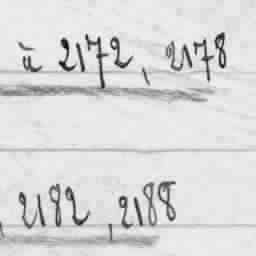 à 2172, 2178
, 2182, 2188